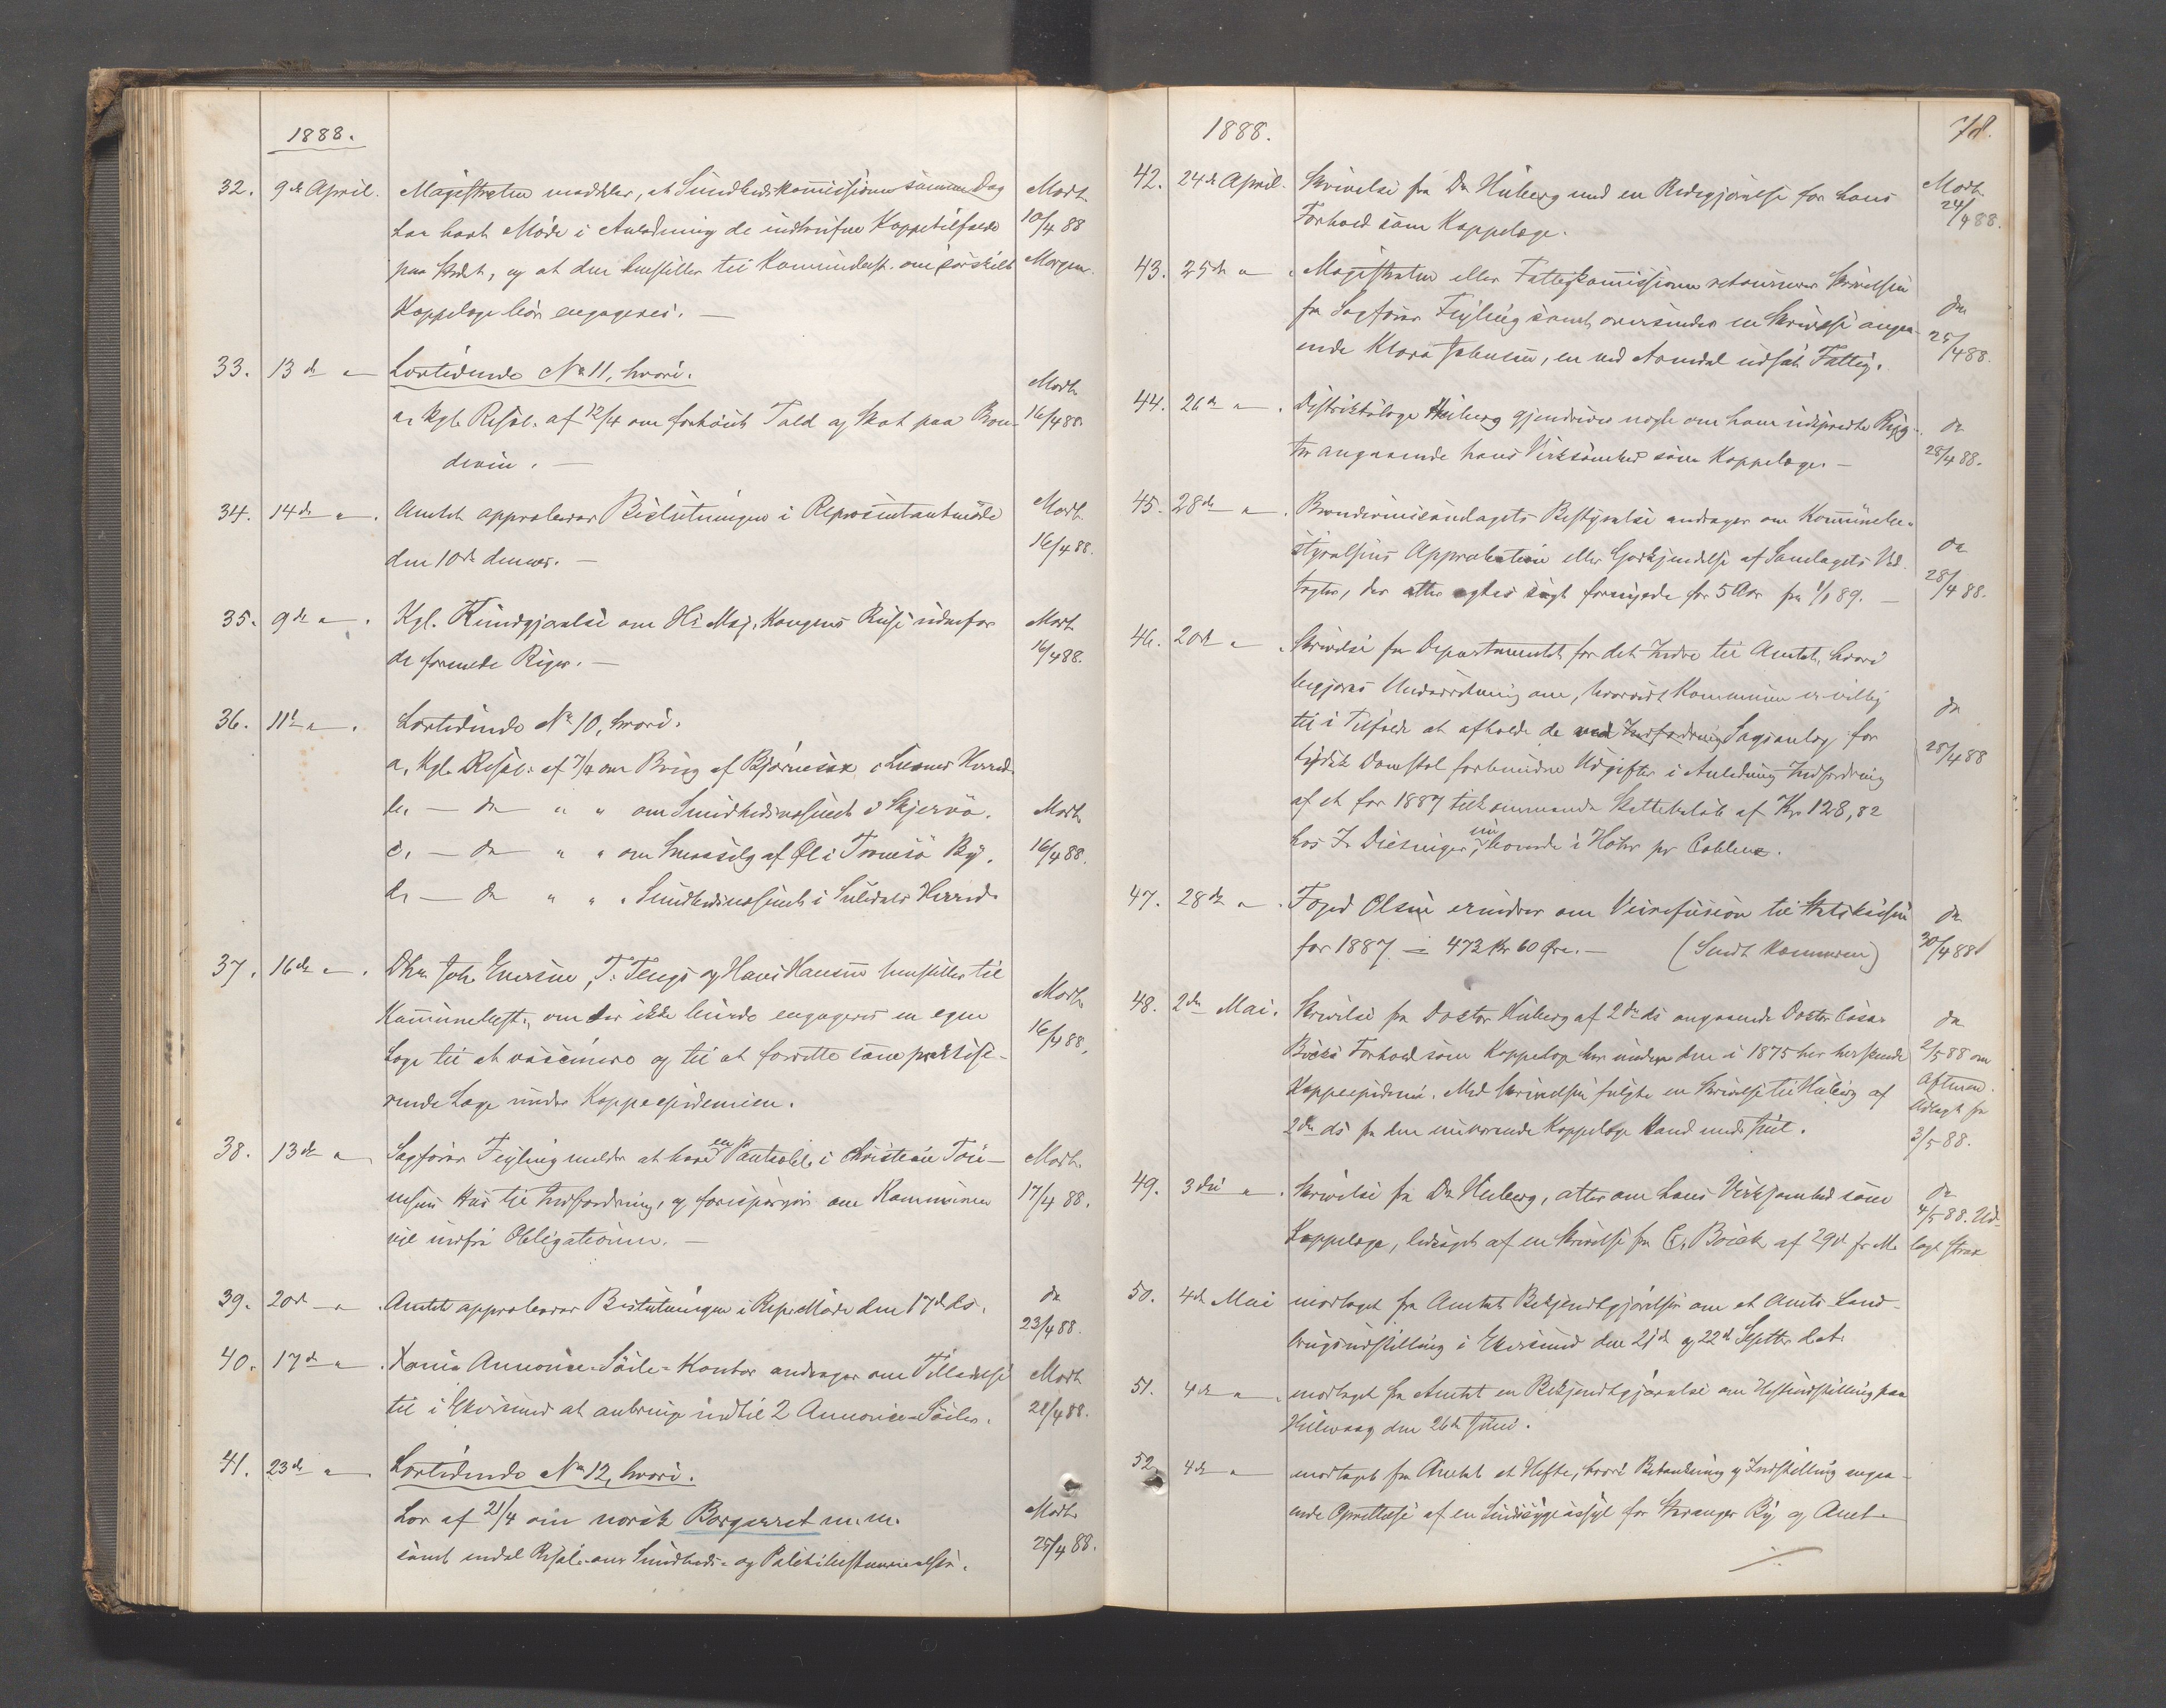 1888.
32. 9de April. Magistraten meddeler, at Sundhedskommissionen samme Dag Modt.
har havt Møde i Anledning de indtrufne Koppetilfælde 10/4 88
paa Stedet, og at den henstiller til Kommunebest. om særskilt Morgen.
Koppelæge bør engageres. —
33. 13de " Lovtidende No 11, hvori. Modt.
a, Kgl. Resol. af 12/4 om forhøiet Told og Skat paa Bræn- 16/4 88.
devin. —
34. 14de " . Amtet approberer Beslutningen i Repræsentantmøde Modt.
den 10de dennes. — 16/4 88.
35. 9de " . Kgl. Kundgjørelse om Hs. Maj. Kongens Reise udenfor Modt.
de forenede Riger. — 16/4 88.
36. 11te " . Lovtidende No 10, hvori.
a, Kgl. Resol. af 7/4 om Brug af Bjørnesax i Herred.
b, — do " " om Sundhedsvæsenet i Skjervø. Modt.
c, — do " " om Smaasalg af Øl i Tromsø By. 16/4 88.
d, — do " " " Sundhedsvæsenet i Suledals Herred.
37. 16de " . DHrr. Joh. Evensen, T. Tengs og Hans Hansen henstiller til
Kommunebest., om der ikke burde engageres en egen Modt.
Læge til at vaccinere og til at forrette som praktise- 16/4 88.
rende Læge under Koppeepidemien.
38. 13de " Sagfører Feyling melder at have en Panteobl. i Christian Tøn- Modt.
nesens Hus til Indfordring, og forespørger om Kommunen 17/4 88.
vil indfri Obligationen. —
39. 20de " . Amtet approberer Beslutningen i Rep. Møde den 17de ds. do
23/4 88.
40. 17de " . Xania Annonce-Søile-Kontor andrager om Tilladelse Modt.
til i Ekersund at anbringe indtil 2 Annonce-Søiler. 21/4 88.
41. 23de " . Lovtidende No 12, hvori.
Lov af 21/4 om norsk Borgerret m.m. Modt.
samt endel Resol. om Sundheds- og Politibestemmelser. 25/4 88.
1888. 78.
42. 24de April. Skrivelse fra Dr. Heiberg med en Redegjørelse for hans Modt.
Forhold som Koppelæge. 24/4 88.
43. 25de " . Magistraten eller Fattigkommissionen retournerer Skrivelsen
fra Sagfører Feyling samt oversender en Skrivelse angaa- do
ende Klara Jakobsen, en ved Arendal udsat Fattig. 25/4 88.
44. 26de " . Distriktslæge Heiberg gjendriver nogle om ham udspredte Ryg- do
ter angaaende hans Virksomhed som Koppelæge. — 28/4 88.
45. 28de " . Brændevinssamlagets Bestyrelse andrager om Kommunebe-
styrelsens Approbation eller Godkjendelse af Samlagets Ved- do
tægter, der atter agtes søgt fornyede for 5 Aar fra 1/1 89. — 28/4 88.
46. 20de " . Skrivelse fra Departementet for det Indre til Amtet, hvori
begjæres Underretning om, hvorvidt Kommunen er villig
til i Tilfælde at afholde de ved Indfordring Sagsanlæg for do
tydsk Domstol forbundne Udgifter i Anledning Indfordring 28/4 88
af et for 1887 tilkommende Skattebeløb af Kr. 128,82
hos F. Diesinger, nu boende i Höhr pr Coblenz.
47. 28de " . Foged Olsen erindrer om Veirefusion til Statskassen do
for 1887 = 473 Kr 60 Øre. — (Sendt Kæmneren) 30/4 88
48. 2den Mai. Skrivelse fra Doctor Heiberg af 2den ds angaaende Doctor Cæsar
Boecks Forhold som Koppelæge her under den i 1875 her herskende do
2/5 88 om
Koppeepidemi. Med Skrivelsen fulgte en Skrivelse til Heiberg af Aftenen.
Udlagt fra
2den ds fra den nuværende Koppelæge Sand med Fiel. 3/5 88.
49. 3die " . Skrivelse fra Dr. Heiberg, atter om hans Virksomhed som do
4/5 88. Ud-
Koppelæge, ledsaget af en Skrivelse fra C. Boeck af 29de f. M. lagt strax
50. 4de Mai modtaget fra Amtet Bekjendtgjørelse om et Amts Land-
brugsudstilling i Ekersund den 21de og 22de Septbr. d. A.
51. 4de " . modtaget fra Amtet en Bekjendtgjørelse om Hesteudstilling paa
Hillevaag den 26de Juni.
52. 4de " modtaget fra Amtet et Hefte, hvori Betænkning og Indstilling angaa-
ende Oprettelse af en Sindssygeasyl for Stavanger By og Amt.